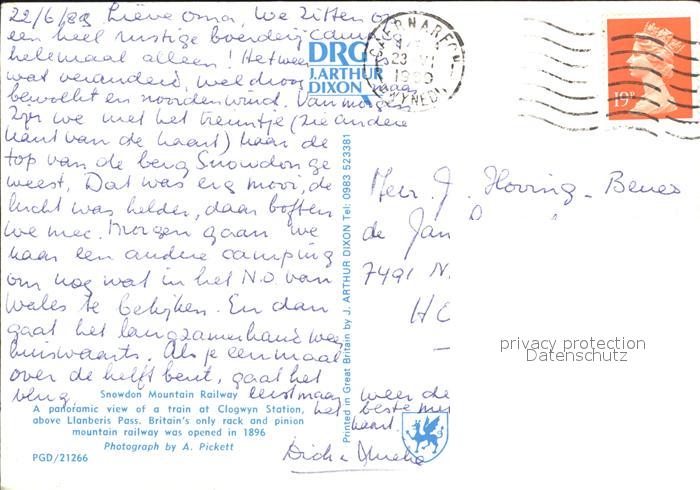 22/6/89 Lieve oma, We zitten op
een heel rustige boerderijcamping
helemaal alleen! Het weer is
wat veranderd, wel droog maar
bewolkt en noordenwind. Vanmorgen
zijn we met het treintje (zie andere
kant van de kaart) naar de
top van de berg Snowdon ge
weest. Dat was erg mooi, de
lucht was helder, daar boften
we mee. Morgen gaan we
naar een andere camping
om nog wat in het N.O van
Wales te bekijken. En dan
gaat het langzamerhand weer
huiswaarts. Als je eenmaal
over de helft bent, gaat het
vlug.
weer de
het beste met
kaart.
Dick &
DRG
J. ARTHUR
DIXON
CAERNARFON
23 VI
1989
GWYNEDD
19P
Printed in Great Britain by J. ARTHUR DIXON Tel: 0983 523381
de Jan
7491 N.
privacy protection
Datenschutz
Snowdon Mountain Railway
A panoramic view of a train at Clogwyn Station,
above Llanberis Pass. Britain's only rack and pinion
mountain railway was opened in 1896
Photograph by A. Pickett
PGD/21266